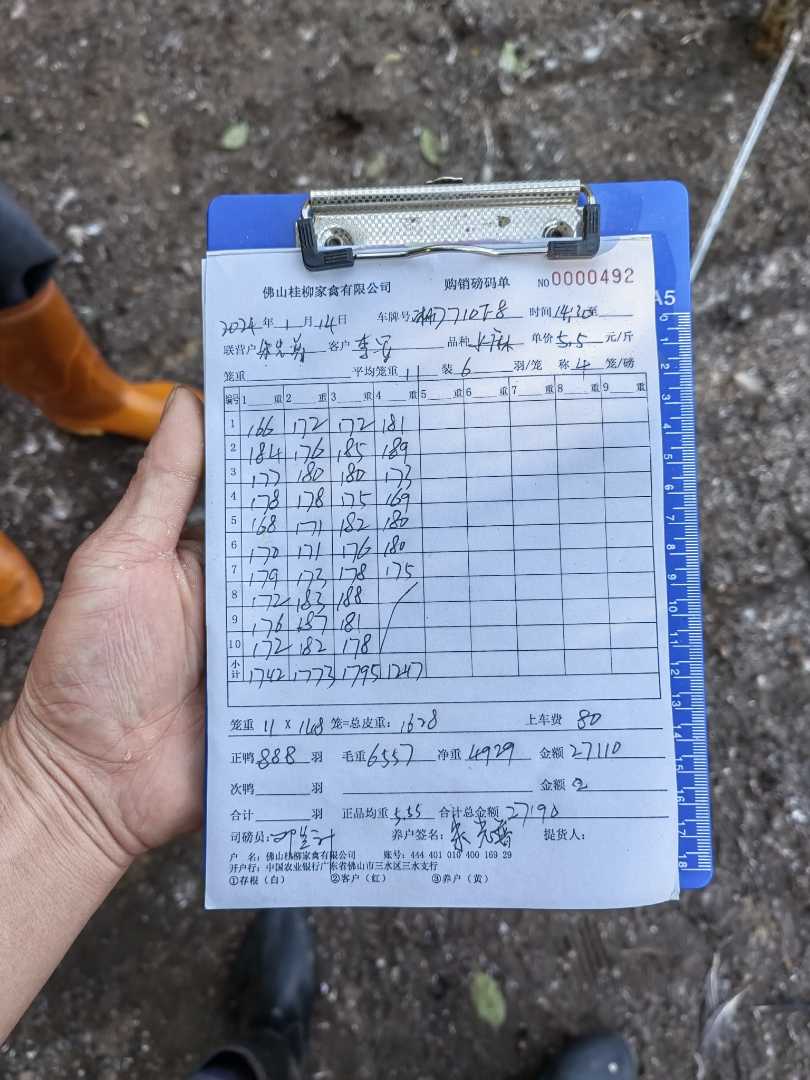 佛山桂柳家禽有限公司 购销磅码单 NO0000492
2024年1月14日 车牌号 7710T8 时间14:20至
联营户 客户 李 品种 单价5.5元/斤
笼重 平均笼重11 装6羽/笼 称4笼/磅
编号 1重 2重 3重 4重 5重 6重 7重 8重 9重
1 166 172 172 181
2 184 176 185 189
3 177 180 180 173
4 178 178 175 169
5 168 171 182 180
6 170 171 176 180
7 179 173 178 175
8 172 183 188
9 176 187 181
10 172 182 178
小计 1742 1773 1795 1247
笼重11X148笼=总皮重:1628 上车费 80
正鸭888羽 毛重6557 净重4929 金额27110
次鸭 羽 金额
合计 羽 正品均重5.55 合计总金额27190
司磅员: 养户签名: 提货人:
户 名:佛山桂柳家禽有限公司 账号:444 401 010 400 169 29
开户行:中国农业银行广东省佛山市三水区三水支行
①存根(白) ②客户(红) ③养户(黄)
A5
0 1 2 3 4 5 6 7 8 9 10 11 12 13 14 15 16 17 18